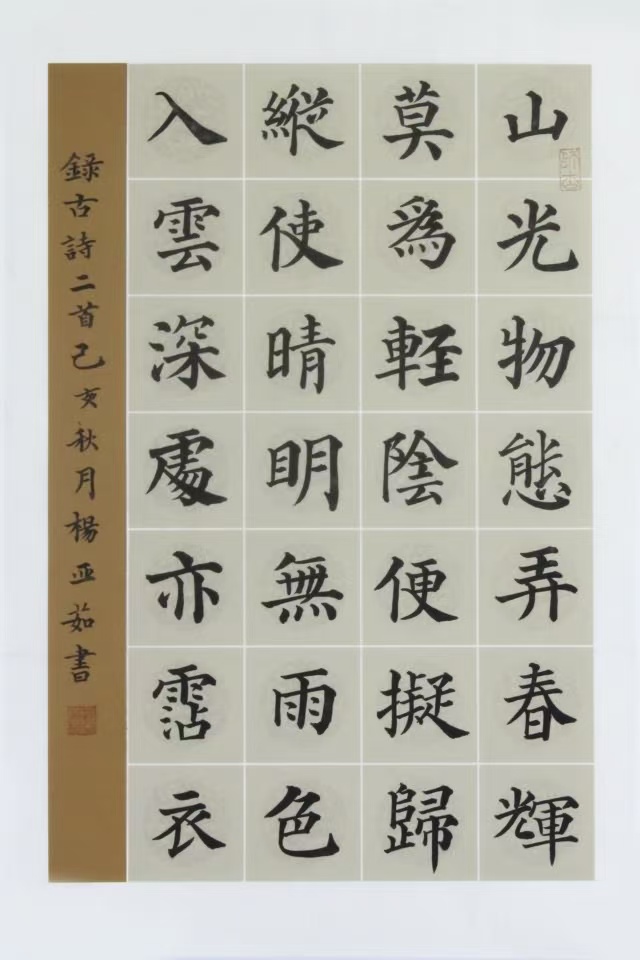 山光物態弄春輝
莫為輕陰便擬歸
縱使晴明無雨色
入雲深處亦霑衣
録古詩二首己亥秋月楊亚茹書